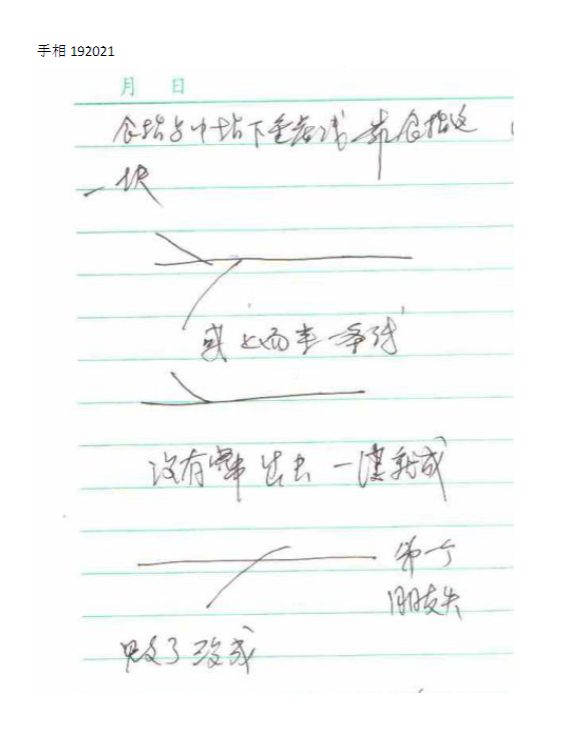 手相 192021
月 日
食指与中指下垂者线 靠食指这
一块
或上面来一条线
没有穿出去 一谈就成
第一个
朋友失
败了 没成